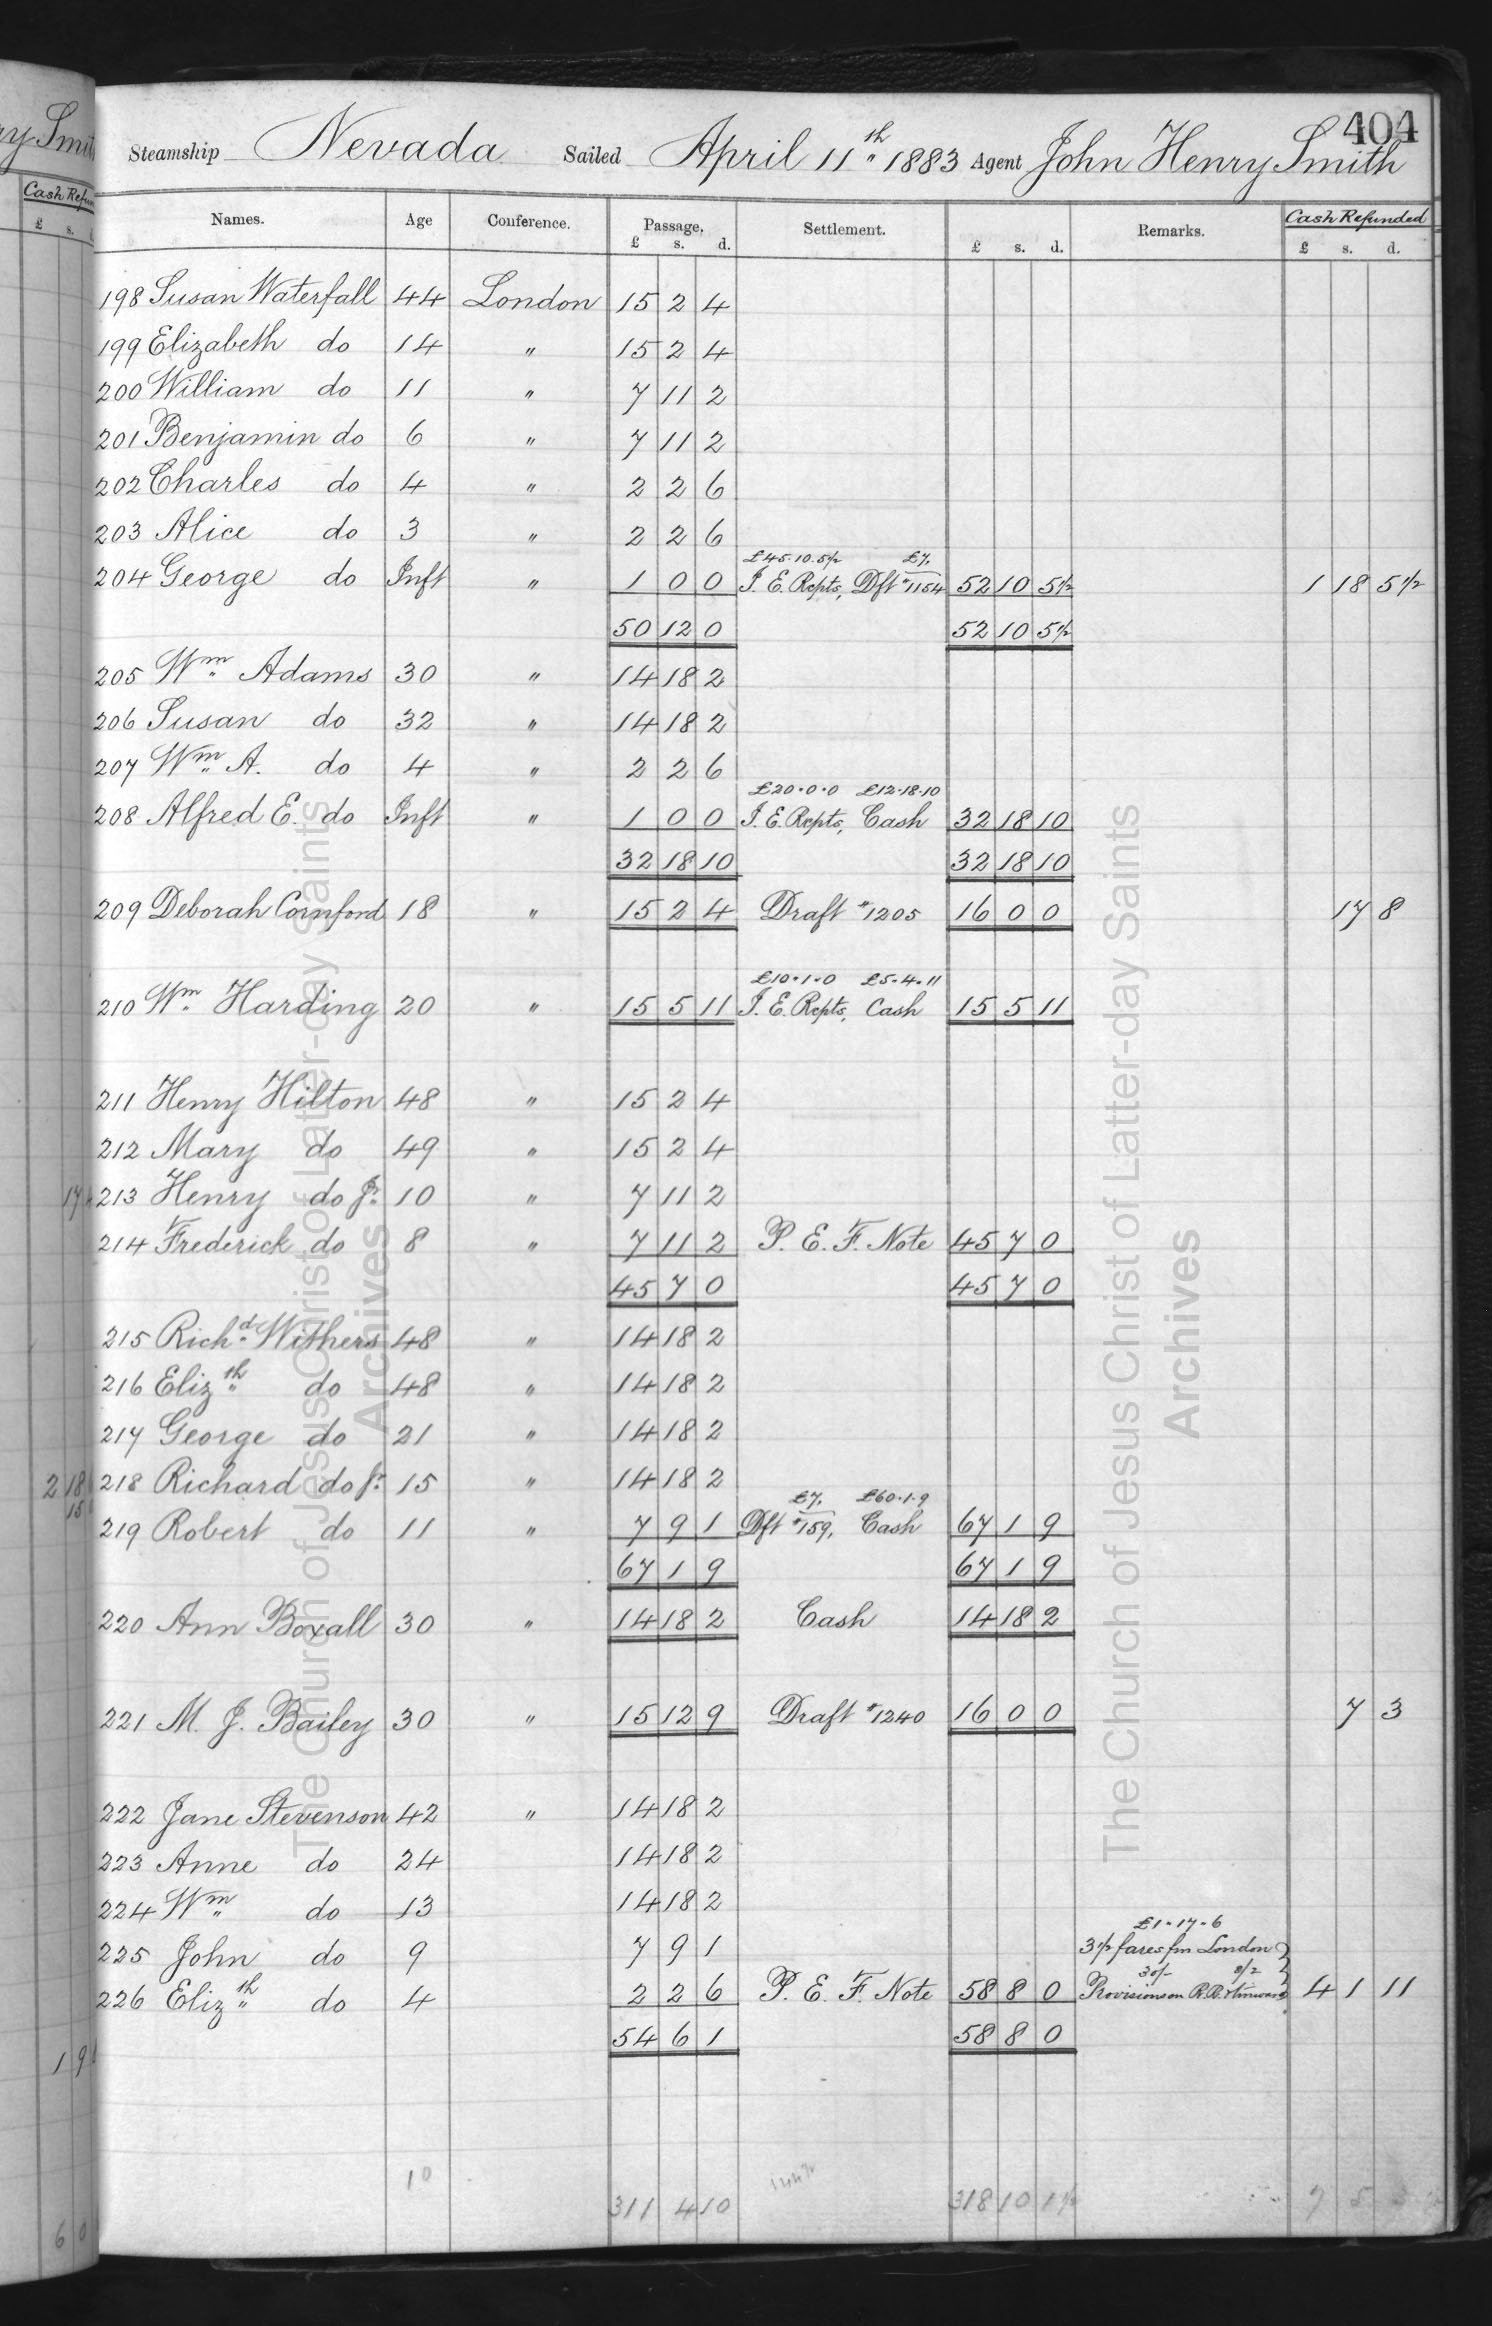 404
Steamship Nevada Sailed April 11th 1883 Agent John Henry Smith
Names. Age Conference. Passage. Settlement. Remarks. Cash Refunded
£ s. d. £ s. d. £ s. d.
198 Susan Waterfall 44 London 15 2 4
199 Elizabeth do 14 " 15 2 4
200 William do 11 " 7 11 2
201 Benjamin do 6 " 7 11 2
202 Charles do 4 " 2 2 6
203 Alice do 3 " 2 2 6
£45.10.5½ £7.
204 George do Inft " 1 0 0 I. E. Repts, Dft #1154 52 10 5½ 1 18 5½
50 12 0 52 10 5½
205 Wm Adams 30 " 14 18 2
206 Susan do 32 " 14 18 2
207 Wm A. do 4 " 2 2 6
£20.0.0 £12.18.10
208 Alfred E. do Inft " 1 0 0 I. E. Repts, Cash 32 18 10
32 18 10 32 18 10
209 Deborah Cornford 18 " 15 2 4 Draft #1205 16 0 0 17 8
£10.1.0 £5.4.11
210 Wm Harding 20 " 15 5 11 I. E. Repts, Cash 15 5 11
211 Henry Hilton 48 " 15 2 4
212 Mary do 49 " 15 2 4
213 Henry do Jr. 10 " 7 11 2
214 Frederick do 8 " 7 11 2 P. E. F. Note 45 7 0
45 7 0 45 7 0
215 Richd Withers 48 " 14 18 2
216 Elizth do 48 " 14 18 2
217 George do 21 " 14 18 2
218 Richard do Jr. 15 " 14 18 2
£7. £60.1.9
219 Robert do 11 " 7 9 1 Dft #159, Cash 67 1 9
67 1 9 67 1 9
220 Ann Boxall 30 " 14 18 2 Cash 14 18 2
221 M. J. Bailey 30 " 15 12 9 Draft #1240 16 0 0 7 3
222 Jane Stevenson 42 " 14 18 2
223 Anne do 24 14 18 2
224 Wm do 13 14 18 2
£1-17-6
225 John do 9 7 9 1 3½ fares fm London
30/- 8/2
226 Elizth do 4 2 2 6 P. E. F. Note 58 8 0 Provisions on R.R. 4 1 11
54 6 1 58 8 0
10
311 4 10 318 10 1½ 7 5 3
The Church of Jesus Christ of Latter-day Saints
Archives
The Church of Jesus Christ of Latter-day Saints
Archives
ry Smith
Cash Refun
£ s.
17
2 18
15
1 9
6 0